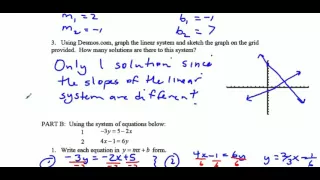 m₁ = 2 b₁ = -1
m₂ = -1 b₂ = 7
3. Using Desmos.com, graph the linear system and sketch the graph on the grid
provided. How many solutions are there to this system?
Only 1 solution since
the slopes of the linear
system are different!
PART B: Using the system of equations below:
1 -3y = 5 - 2x
2 4x - 1 = 6y
1. Write each equation in y = mx + b form.
① -3y = -2x + 5 ② 4x - 1 = 6y y = ⅔x - 1/6
-3 -3 -3 6 6 6